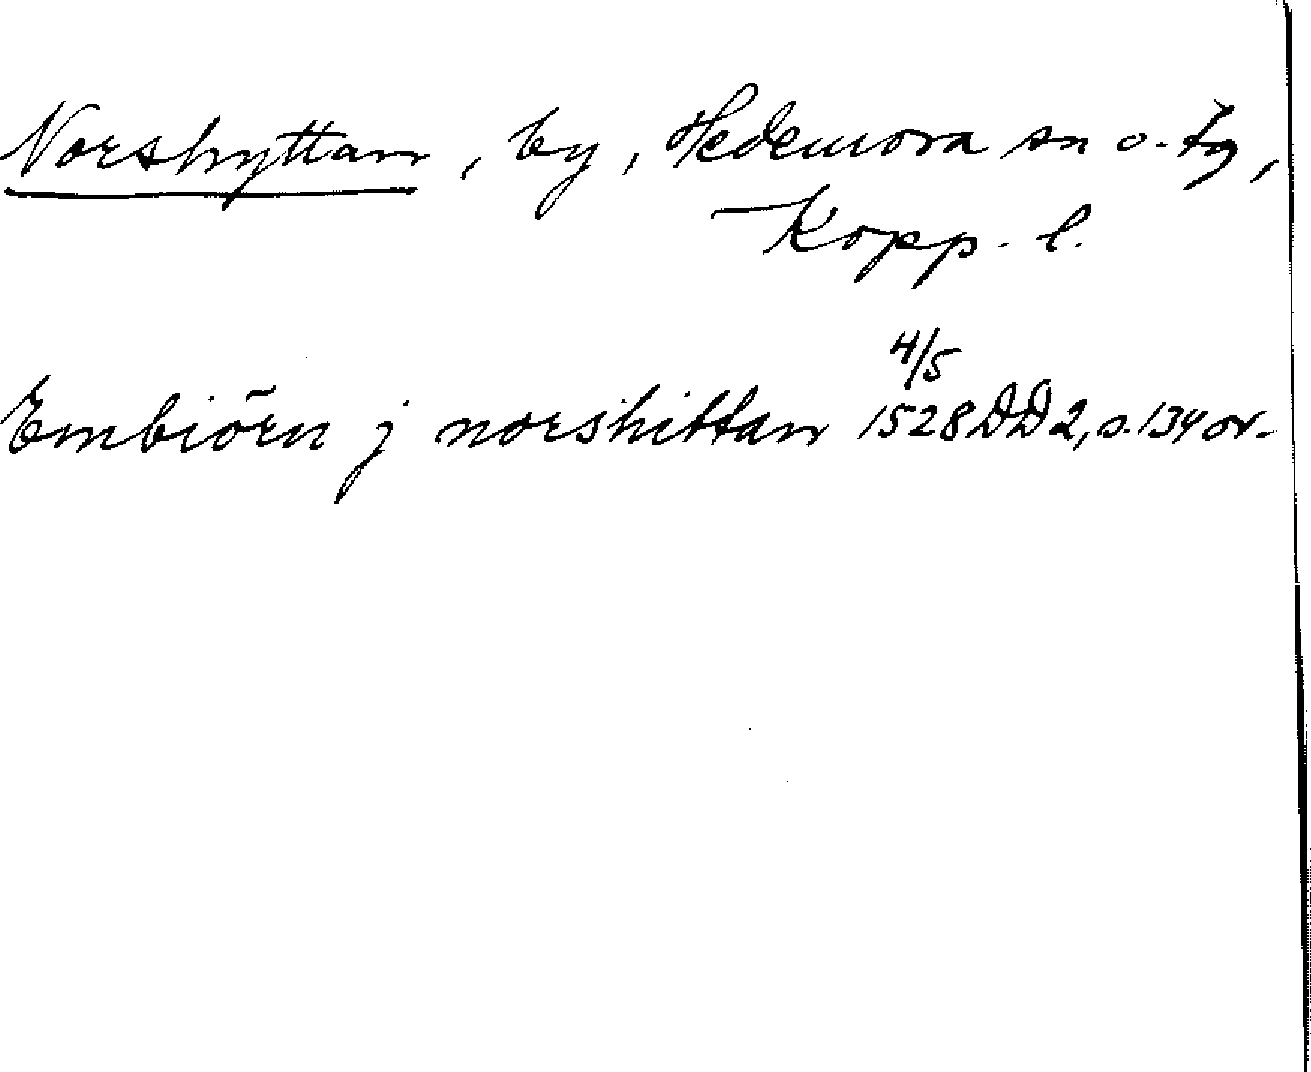 Norshyttan, by, Hedemora sn o. tg,
Kopp. l.
4/5
Embiörn j norshittan 1528 DD2, s. 134 or.